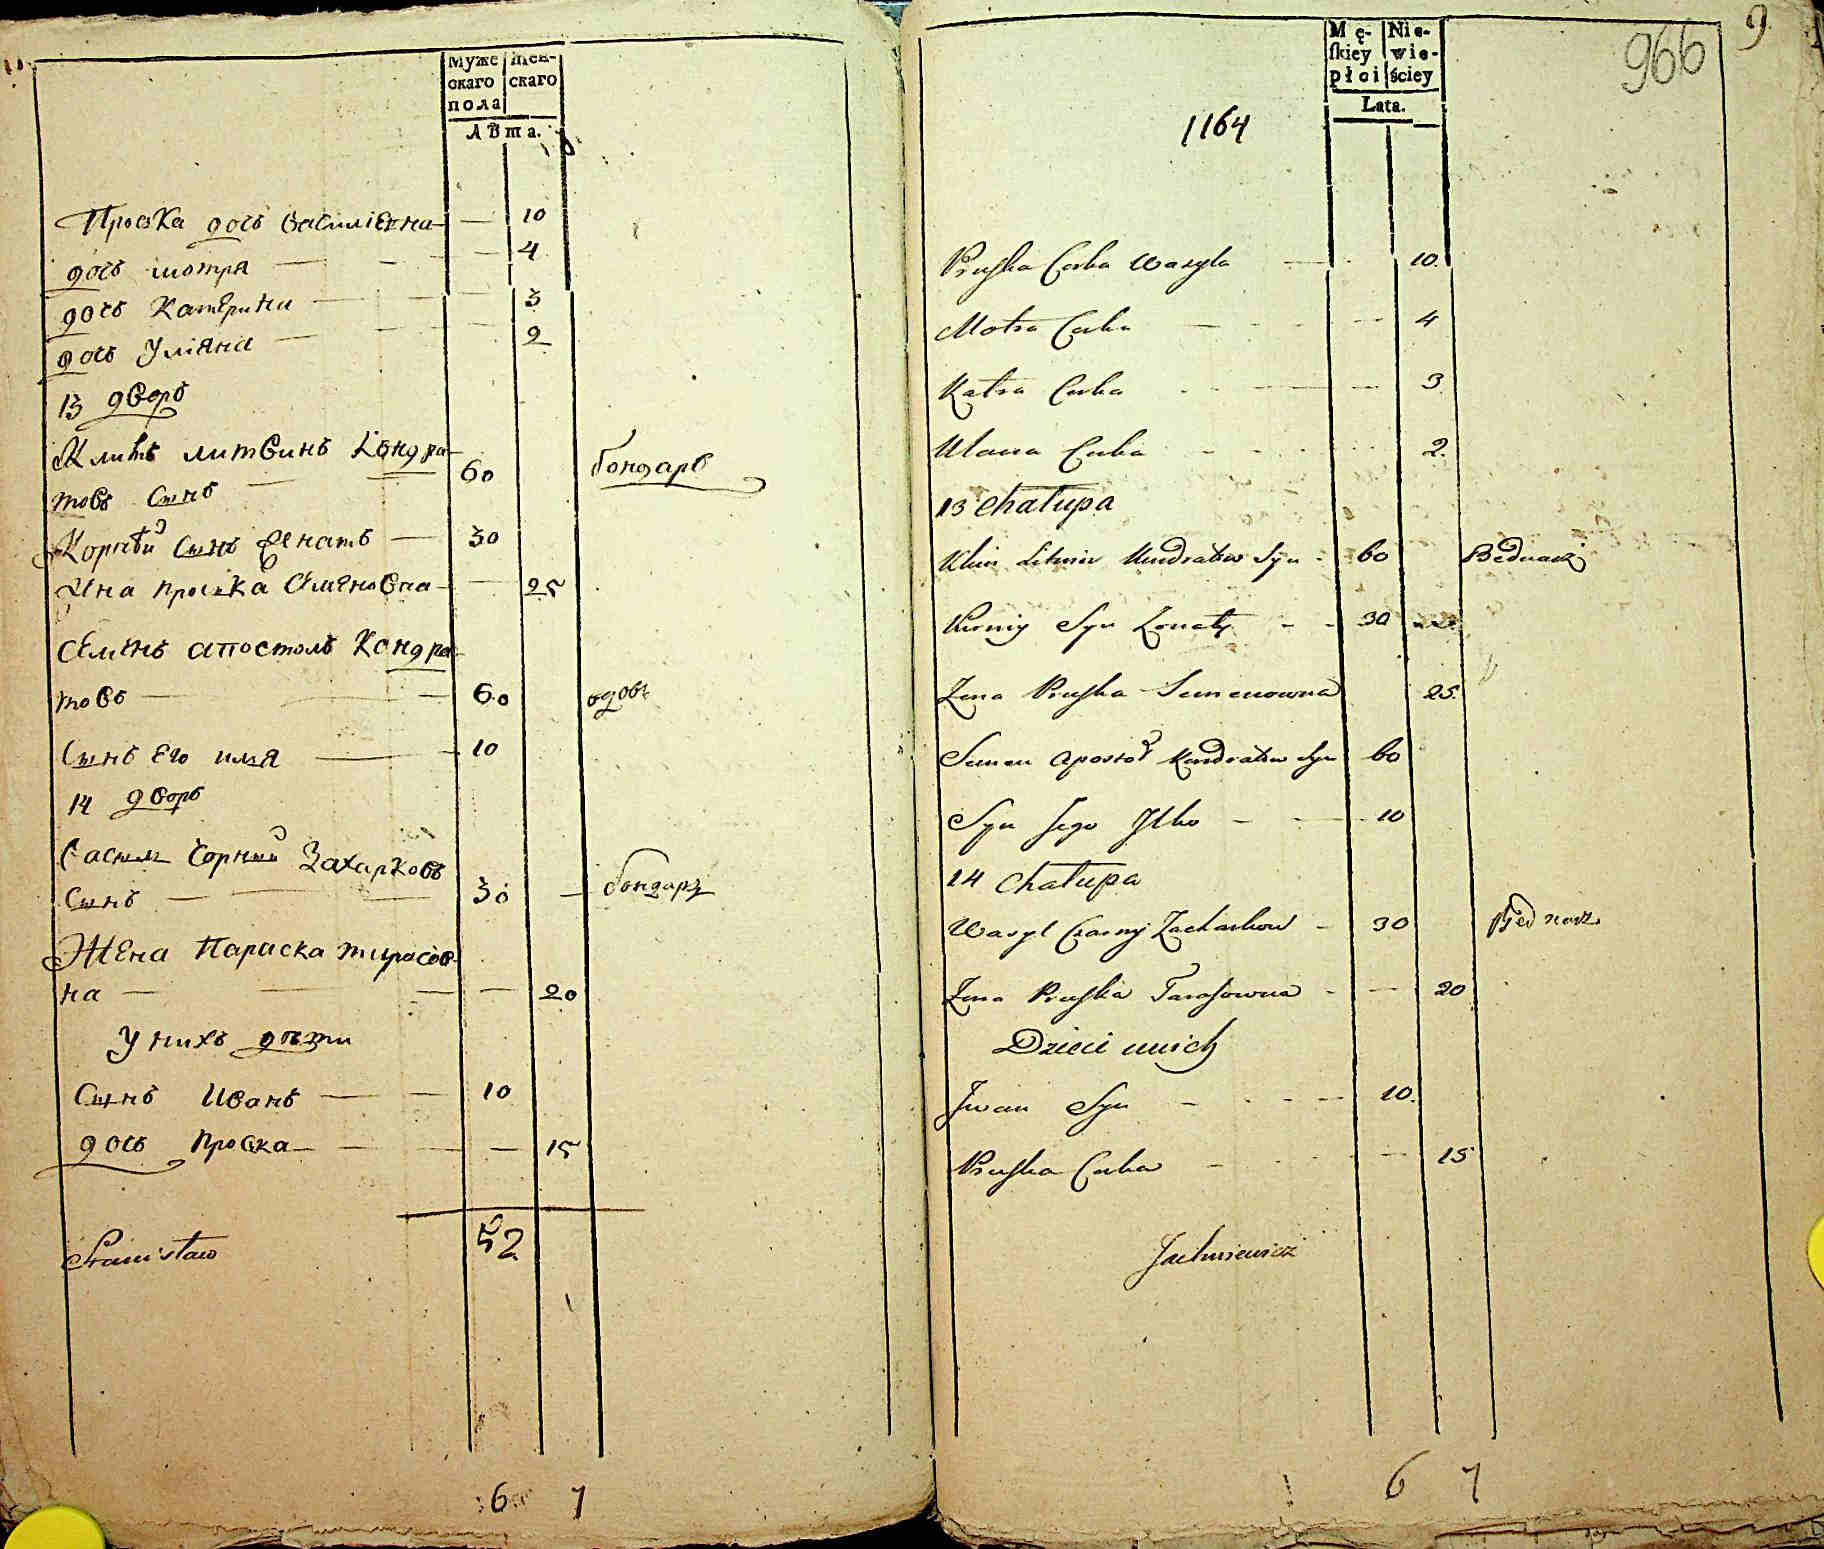 Муже
скаго
пола
Жен-
скаго
Лѣта.
Проска дочь Василіевна — 10
дочь мотря — 4
дочь Катерина — 3
дочь Уліяна — 2
13 дворъ
Климъ литвинъ Кондра-
товъ Сынъ — 60 бондарь
Корнѣй Сынъ — 30
Жена проска Семеновна — 25
Семенъ апостолъ Кондра-
товъ — 60 вдовъ
Сынъ Его илля — 10
14 дворъ
Василь Чорный Захарковъ
Сынъ — 30 — бондаръ
Жена Параска тарасов-
на — 20
У нихъ дѣти
Сынъ Иванъ — 10
дочь Проска — 15
52
Stanisław
6 7
966 9
Mę-
skiey
płci
Nie-
wie-
ściey
Lata.
1164
Pruska Corka Wasyla — 10.
Motra Corka — 4
Katra Corka — 3
Ulana Corka — 2.
13 Chałupa
Klim Litwin Kondratow Syn - 60 Bednarz
Korniy Syn - - 30
Zona Pruska Semenowna 25.
Semen Apostoł Kondratow Syn 60
Syn Jego Ilko — 10
14 Chałupa
Wasyl Czarny Zacharkow - 30 Bednarz
Zona Pruska Tarasowna - — 20
Dzieci unich
Jwan Syn — 10.
Pruska Corka — 15
Jachniewicz
6 7